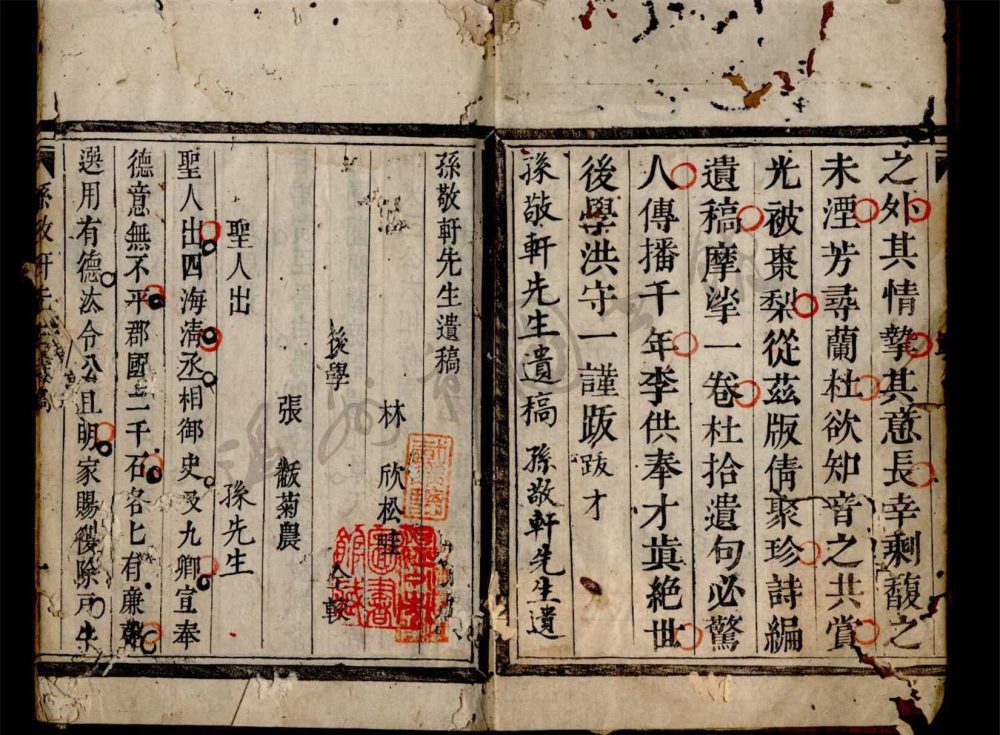 之外其情摯其意長幸剩馥之
未湮芳尋蘭杜欲知音之共賞
光被棗梨從茲版倩聚珍詩編
遺稿摩挲一卷杜拾遺句必驚
人傳播千年李供奉才眞絕世
後學洪守一謹跋 跋才
孫敬軒先生遺稿 孫敬軒先生遺
孫敬軒先生遺稿
林欣松畦
後學 仝較
張黻菊農
聖人出 孫先生
聖人出四海淸丞相御史及九卿宣奉
德意無不平郡國二千石各匕有廉
選用有德汰令公且明家賜復除戸牛
孫敬軒先生遺稿